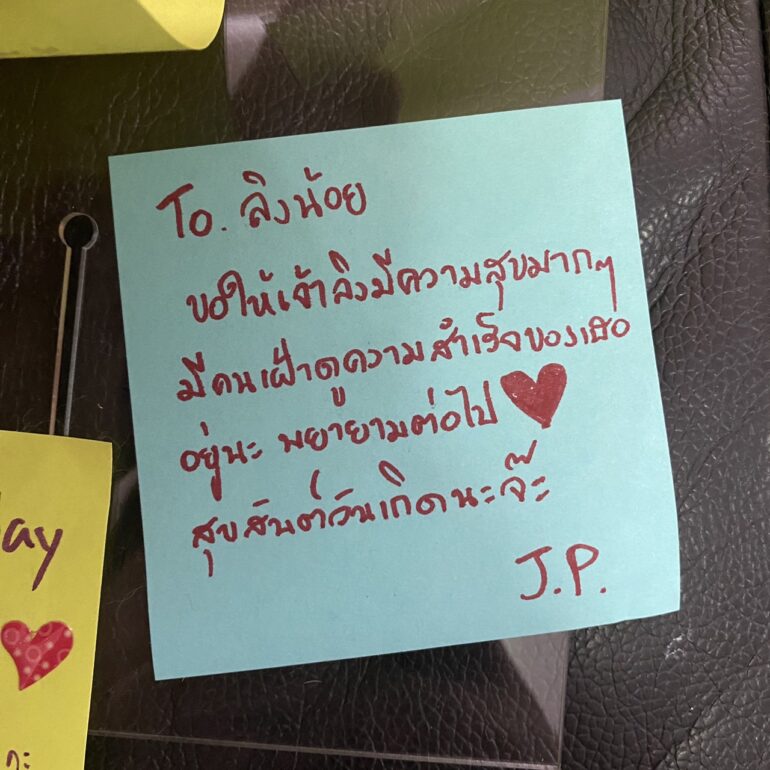 To. ลิงน้อย
ขอให้เจ้าลิงมีความสุขมากๆ
มีคนเฝ้าดูความสำเร็จของเธอ
อยู่นะ พยายามต่อไป
สุขสันต์วันเกิดนะจ๊ะ
J.P.
ay